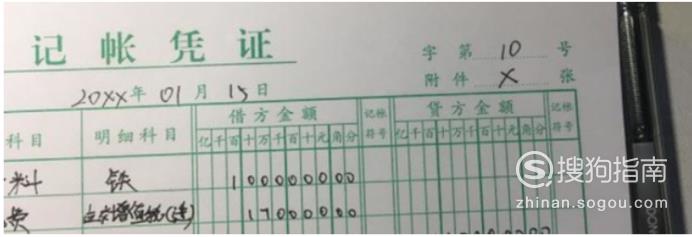 记帐凭证
字第 10 号
20XX年 01 月 15 日
附件 X 张
科目 明细科目 借方金额 记帐符号 贷方金额 记帐符号
亿千百十万千百十元角分 亿千百十万千百十元角分
料 铁 100000000
应交增值税(进) 17000000
搜狗指南
zhinan.sogou.com